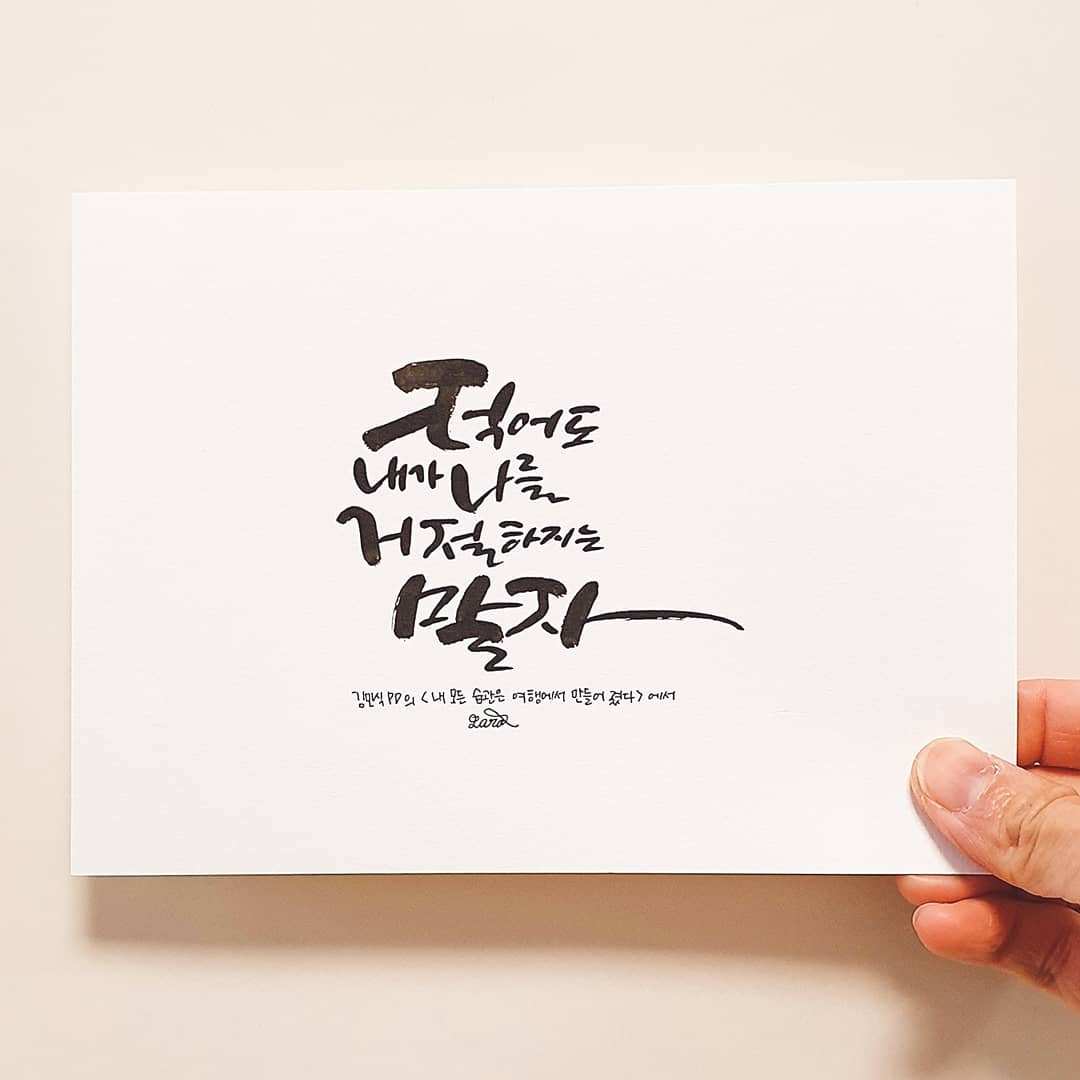 적어도
내가 나를
거절하지는
말자
김민식PD의 <내 모든 습관은 여행에서 만들어 졌다>에서